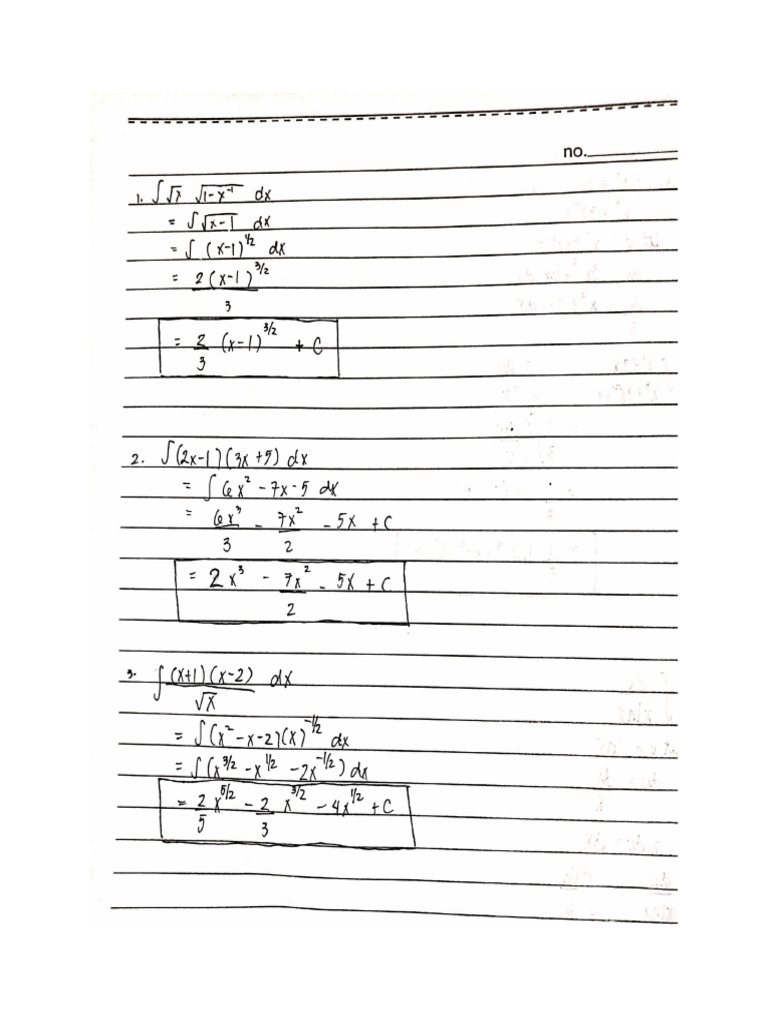 no.
1. ∫√x √1-x⁻¹ dx
= ∫√x-1 dx
= ∫ (x-1)^1/2 dx
= 2(x-1)^3/2 / 3
= 2/3 (x-1)^3/2 + C
2. ∫(2x-1)(3x+5) dx
= ∫ 6x² - 7x - 5 dx
= 6x³/3 - 7x²/2 - 5x + C
= 2x³ - 7x²/2 - 5x + C
3. ∫ (x+1)(x-2)/√x dx
= ∫(x² - x - 2)(x)^-1/2 dx
= ∫(x^3/2 - x^1/2 - 2x^-1/2) dx
= 2/5 x^5/2 - 2/3 x^3/2 - 4x^1/2 + C